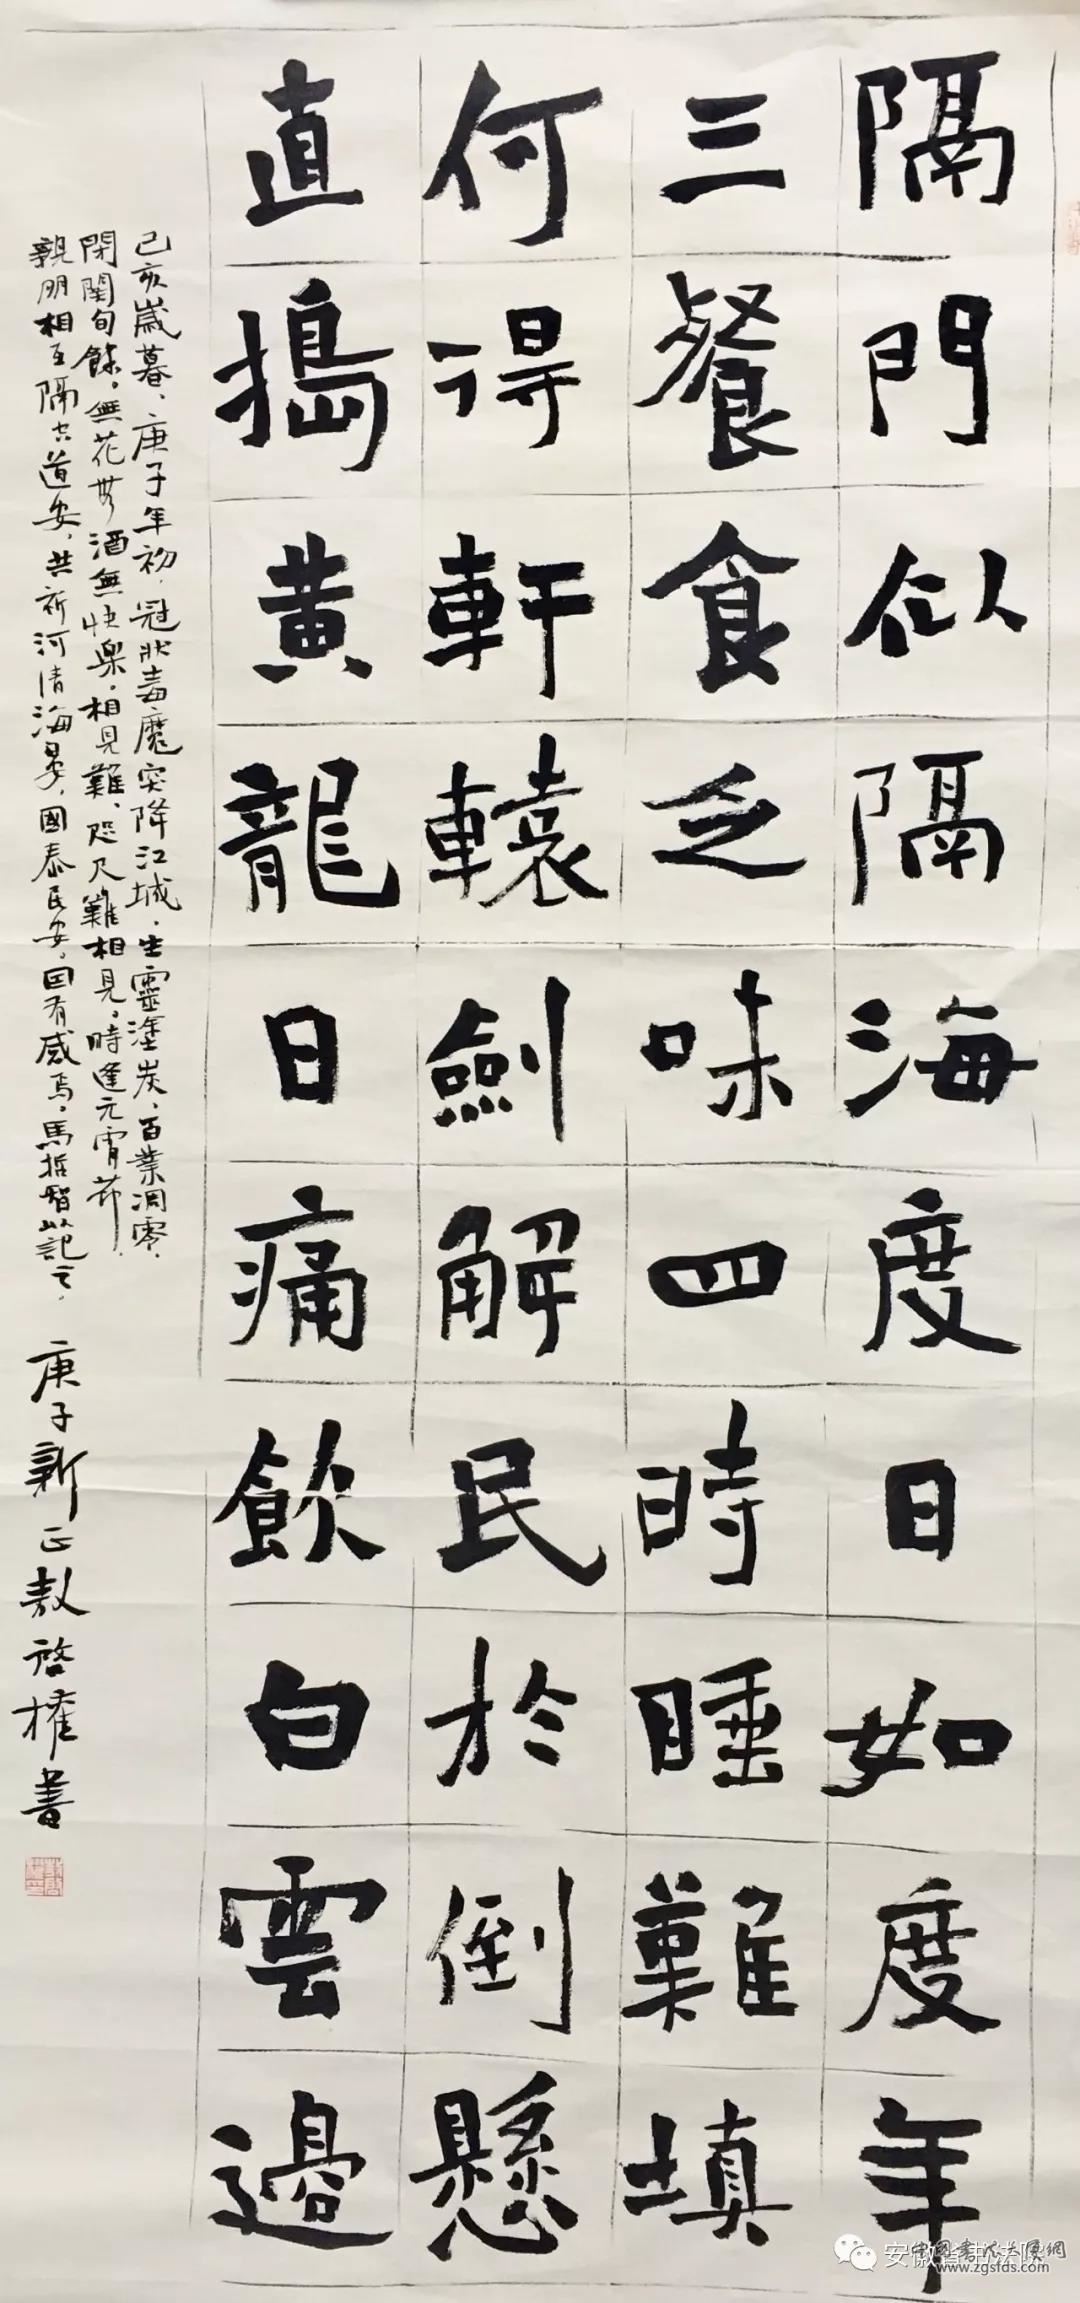 隔門似隔海度日如度年
三餐食乏味四時睡難填
何得軒轅劍解民於倒懸
直搗黃龍日痛飲白雲邊
己亥歲暮庚子年初冠狀毒魔突降江城生靈塗炭百業凋零
閉關旬餘無花無酒無快樂相見難咫尺難相見時逢元宵節
親朋相互隔空道安共祈河清海晏國泰民安因有感焉馬哲智以記之
庚子新正敖啓權書
安徽省书法院
中國書法大厦網
www.zgsfds.com